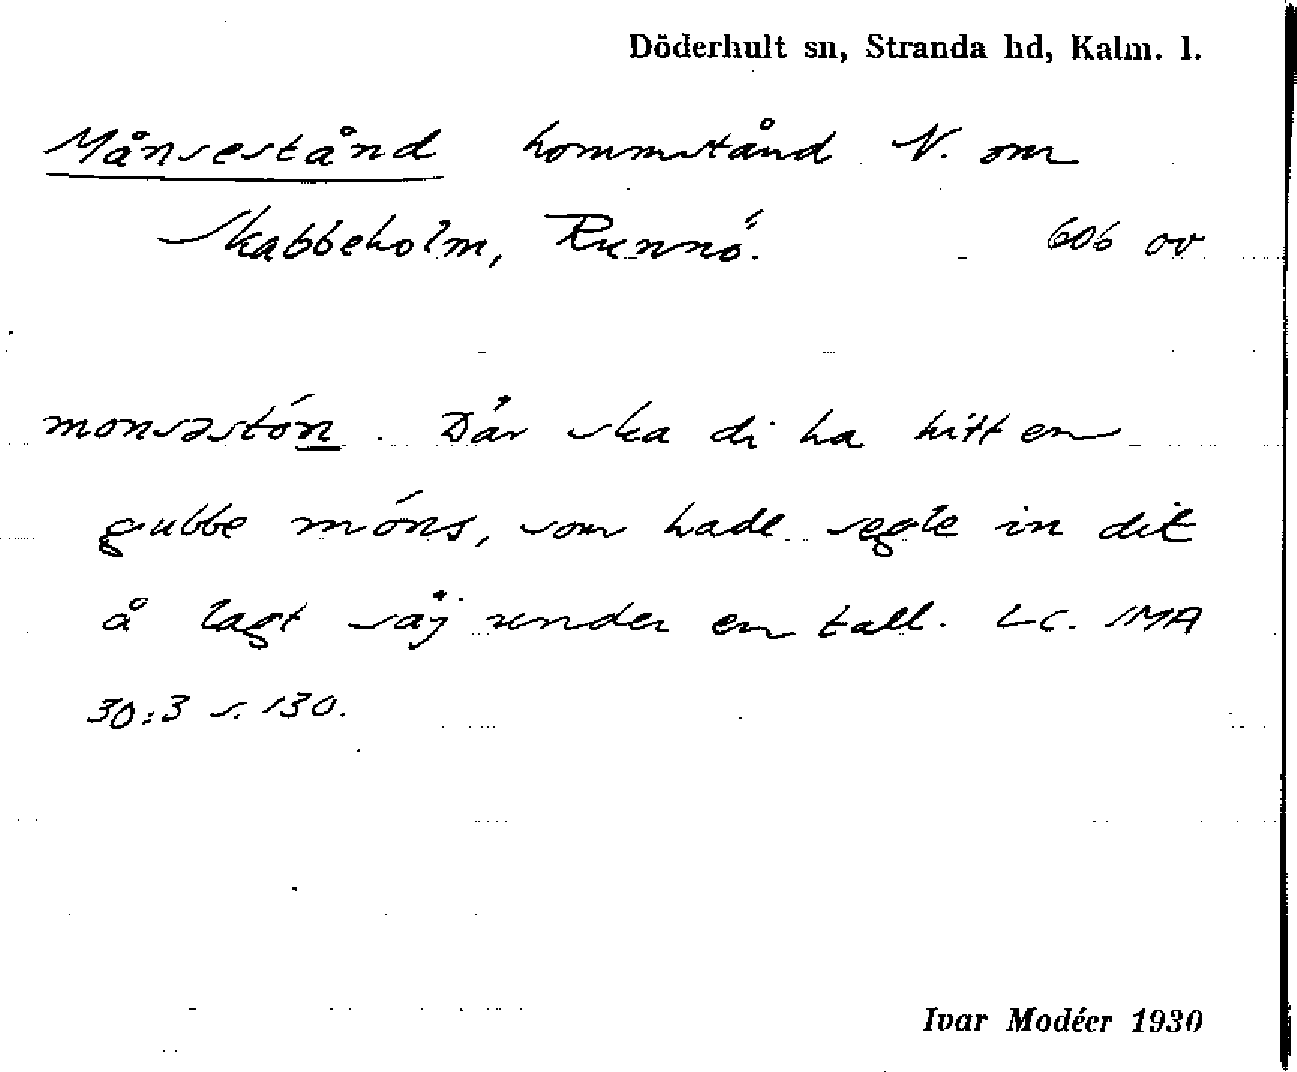 Döderhult sn, Stranda hd, Kalm. l.
Månsestånd kommstånd N. om
Skabbeholm, Runnö. 606 ov
monsəstón. Där ska di ha hitt en
gubbe móns, som hade segle in dit
å lagt säj under en tall. LC. SMA
30:3 s. 130.
Ivar Modéer 1930